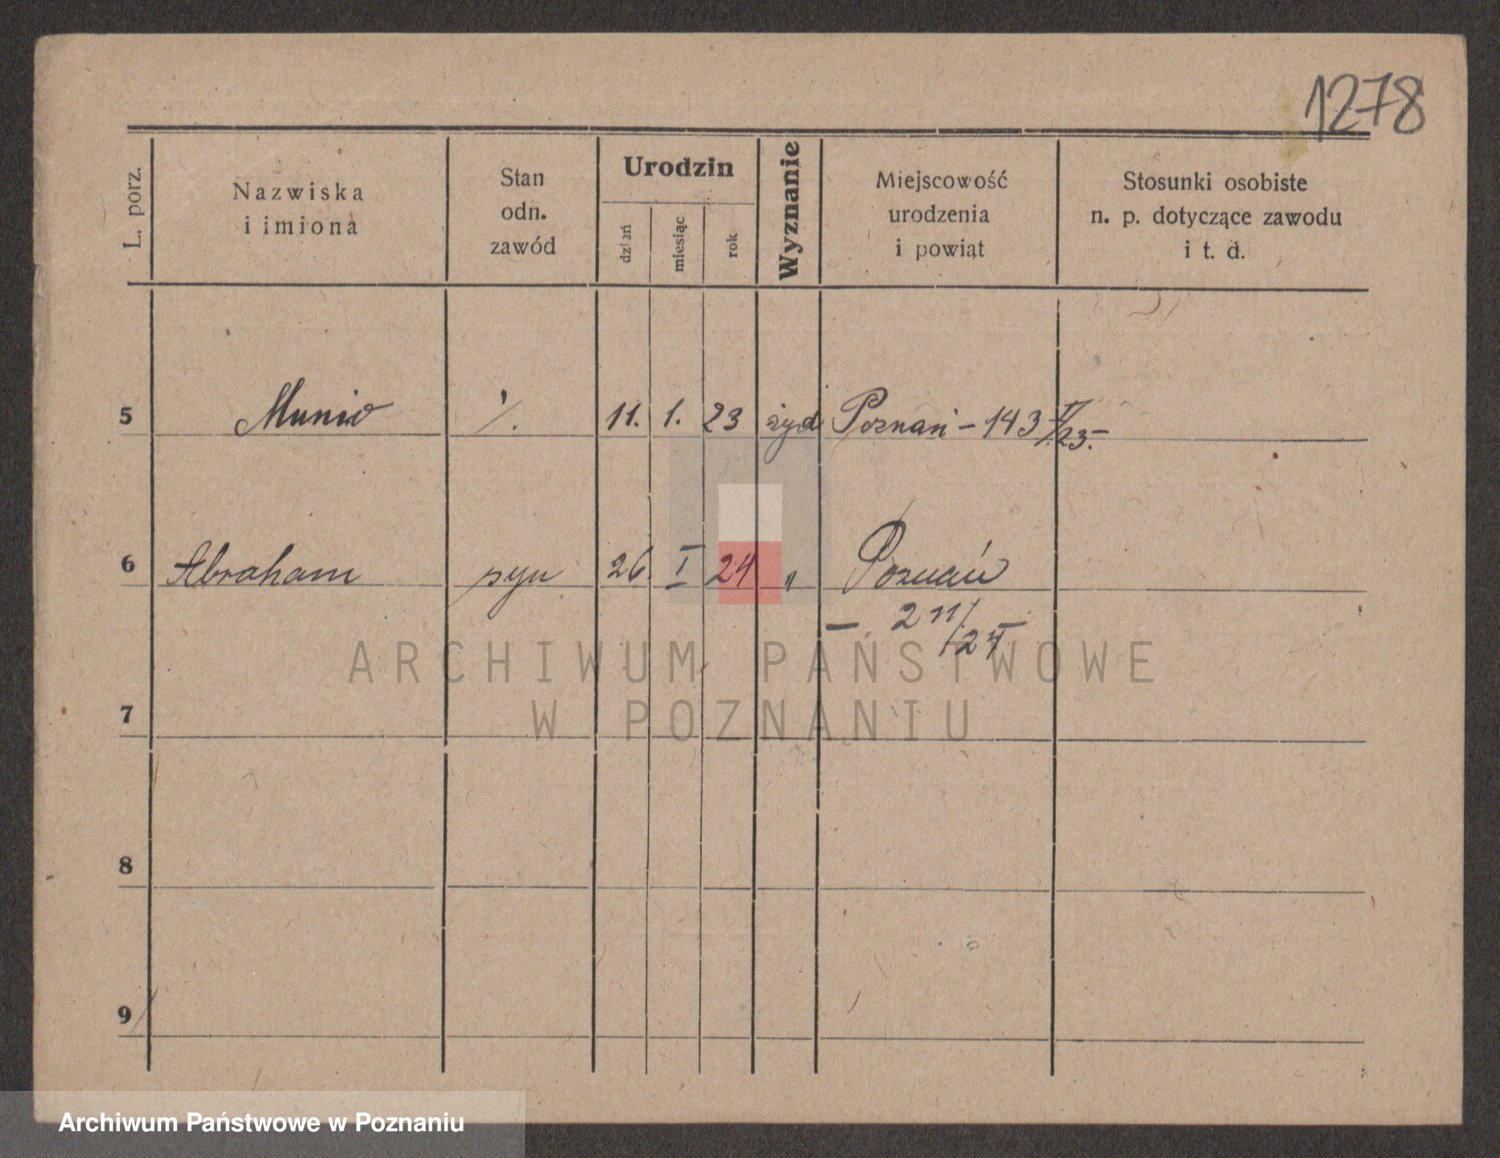 1278
L. porz.
Nazwiska
i imiona
Stan
odn.
zawód
Urodzin
dzień
miesiąc
rok
Wyznanie
Miejscowość
urodzenia
i powiat
Stosunki osobiste
n. p. dotyczące zawodu
i t. d.
5 Munio 11. 1. 23 żyd Poznań - 143 I/23.-
6 Abraham syn 26. I 24 " Poznań
- 211/24
7
8
9
ARCHIWUM PAŃSTWOWE
W POZNANIU
Archiwum Państwowe w Poznaniu